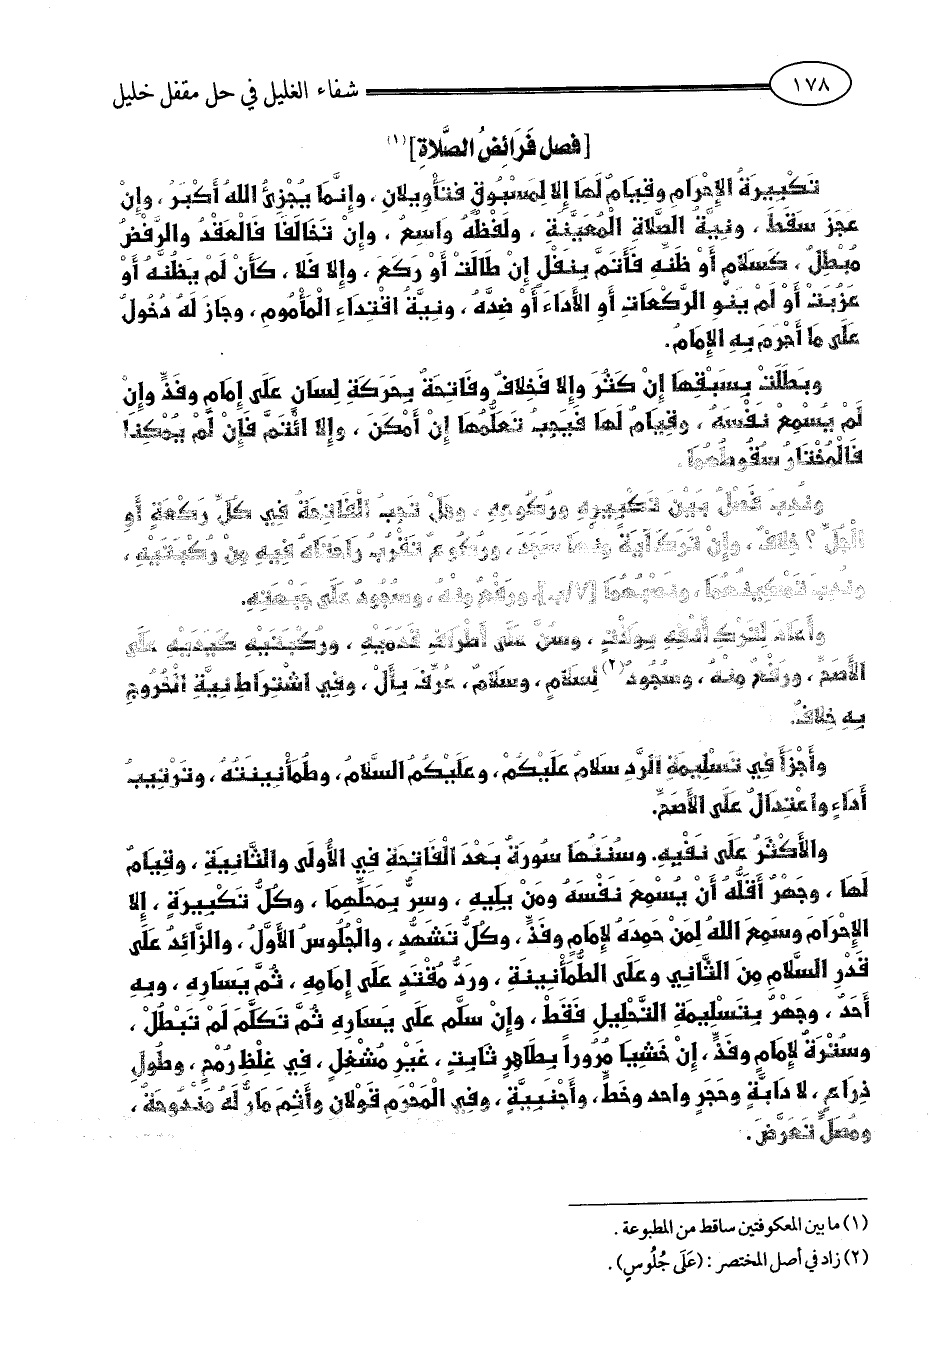 ١٧٨
شفاء الغليل في حل مقفل خليل
[فصل فَرَائضُ الصَّلاةِ](١)
تَكْبِيرَةُ الإِحْرَامِ وقِيَامٌ لَهَا إلا لمَسْبُوقٍ فتَأْوِيلانِ ، وإنَّمَا يُجْزِئُ اللهُ أَكْبَرُ ، وإنْ
عَجَزَ سَقَطَ ، ونِيَّةُ الصَّلاةِ الْمُعَيَّنَةِ ، ولَفْظُهُ واسِعٌ ، وإنْ تَخَالَفَا فَالْعَقْدُ والرَّفْضُ
مُبْطِلٌ ، كَسَلامٍ أو ظَنِّهِ فَأَتَمَّ بِنَفْلٍ إنْ طَالَتْ أَوْ رَكَعَ ، وإلا فَلا ، كَأَنْ لَمْ يَظُنَّهُ أَوْ
عَزُبَتْ أَوْ لَمْ يَنْوِ الرَّكَعَاتِ أوِ الأَدَاءَ أَوْ ضِدَّهُ ، ونِيَّةُ اقْتِدَاءِ الْمَأْمُومِ ، وجَازَ لَهُ دُخُولٌ
عَلَى مَا أَحْرَمَ بِهِ الإِمَامُ.
وبَطَلَتْ بِسَبْقِهَا إنْ كَثُرَ وإلا فَخِلافٌ وفَاتِحَةٌ بِحَرَكَةِ لِسَانٍ عَلَى إمَامٍ وفَذٍّ وإنْ
لَمْ يُسْمِعْ نَفْسَهُ ، وقِيَامٌ لَهَا فَيَجِبُ تَعَلُّمُهَا إنْ أَمْكَنَ ، وإلا ائْتَمَّ فَإنْ لَمْ يُمْكِنَا
فَالْمُخْتَارُ سُقُوطُهُمَا.
ونُدِبَ فَصْلٌ بَيْنَ تَكْبِيرِهِ ورُكُوعِهِ ، وهَلْ تَجِبُ الْفَاتِحَةُ فِي كُلِّ رَكْعَةٍ أَوِ
الْجُلِّ ؟ خِلافٌ ، وإنْ تَرَكَ آيَةً مِنْهَا سَجَدَ ، ورُكُوعٌ تَقْرُبُ رَاحَتَاهُ فِيهِ مِنْ رُكْبَتَيْهِ ،
ونُدِبَ تَمْكِينُهُمَا ، ونَصْبُهُمَا [٧/ب]، ورَفْعٌ مِنْهُ ، وسُجُودٌ عَلَى جَبْهَتِهِ.
وأَعَادَ لِتَرْكِ أَنْفِهِ بِوَقْتٍ ، وسُنَّ عَلَى أَطْرَافِ قَدَمَيْهِ ، ورُكْبَتَيْهِ كَيَدَيْهِ عَلَى
الأَصَحِّ ، ورَفْعٌ مِنْهُ ، وسُجُودٌ(٢) لِسَلامٍ ، وسَلامٌ، عُرِّفَ بِأَلْ ، وفِي اشْتِرَاطِ نِيَّةِ الْخُرُوجِ
بِهِ خِلافٌ.
وأَجْزَأَ فِي تَسْلِيمَةِ الرَّدِ سَلامٌ عَلَيْكُمْ ، وعَلَيْكُمُ السَّلامُ ، وطُمَأْنِينَتُهُ ، وتَرْتِيبُ
أَدَاءٍ واعْتِدَالٌ عَلَى الأَصَحِّ.
والأَكْثَرُ عَلَى نَفْيِهِ. وسُنَنُهَا سُورَةٌ بَعْدَ الْفَاتِحَةِ فِي الأُولَى والثَّانِيَةِ ، وقِيَامٌ
لَهَا ، وجَهْرٌ أَقَلُّهُ أَنْ يُسْمِعَ نَفْسَهُ ومَنْ يَلِيهِ ، وسِرٌّ بِمَحَلِّهِمَا ، وكُلُّ تَكْبِيرَةٍ ، إلا
الإِحْرَامَ وسَمِعَ اللهُ لِمَنْ حَمِدَهُ لإِمَامٍ وفَذٍّ ، وكُلُّ تَشَهُّدٍ ، والْجُلُوسُ الأَوَّلُ ، والزَّائِدُ عَلَى
قَدْرِ السَّلامِ مِنَ الثَّانِي وعَلَى الطُّمَأْنِينَةِ ، ورَدُّ مُقْتَدٍ عَلَى إمَامِهِ ، ثُمَّ يَسَارِهِ ، وبِهِ
أَحَدٌ ، وجَهْرٌ بِتَسْلِيمَةِ التَّحْلِيلِ فَقَطْ ، وإنْ سَلَّمَ عَلَى يَسَارِهِ ثُمَّ تَكَلَّمَ لَمْ تَبْطُلْ ،
وسُتْرَةٌ لإِمَامٍ وفَذٍّ ، إنْ خَشِيَا مُرُوراً بِطَاهِرٍ ثَابِتٍ ، غَيْرِ مُشْغِلٍ ، فِي غِلَظِ رُمْحٍ ، وطُولِ
ذِرَاعٍ ، لا دَابَّةٍ وحَجَرٍ واحد وخَطٍّ، وأَجْنَبِيَّةٍ ، وفي الْمَحْرَمِ قَوْلانِ وأَثِمَ مَارٌّ لَهُ مَنْدُوحَةٌ ،
ومُصَلٍّ تَعَرَّضَ .
(١) ما بين المعكوفتين ساقط من المطبوعة .
(٢) زاد في أصل المختصر : (عَلَى جُلُوسٍ) .